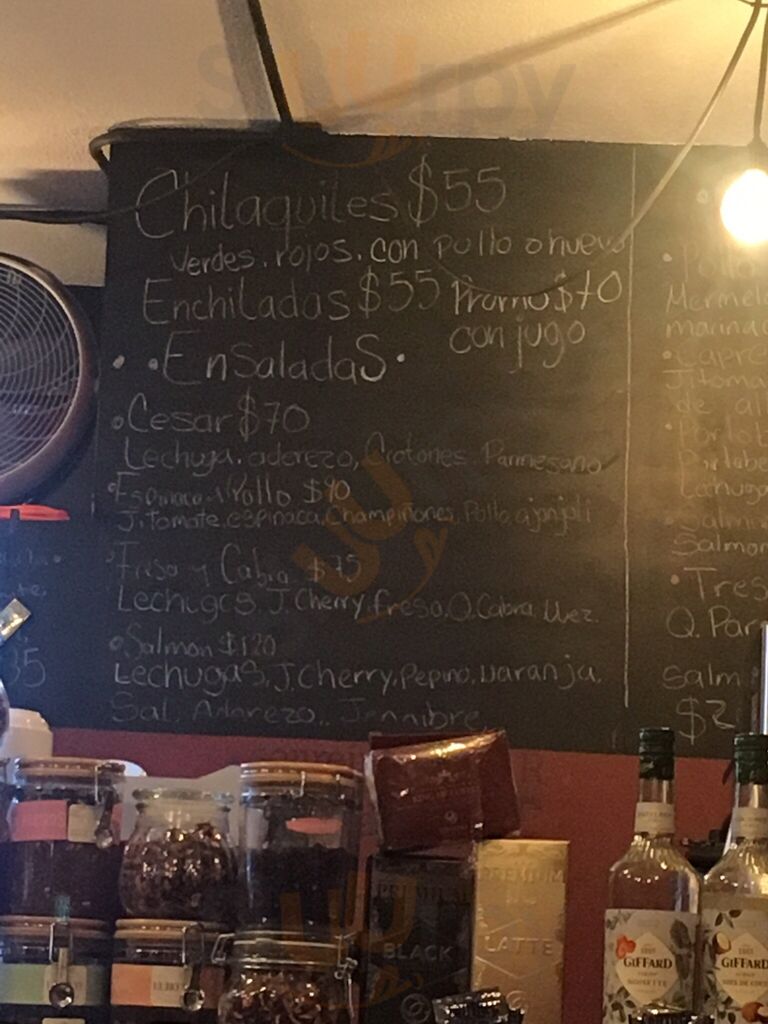 Chilaquiles $55
verdes. rojos. con pollo o huevo
Enchiladas $55 Promo $70
con jugo
• • Ensaladas •
• Cesar $70
Lechuga, aderezo, Crotones. Parmesano
• Espinaca y Pollo $90
Jitomate, espinaca, Champiñones, Pollo ajonjoli
• Fresa y Cabra $75
Lechugas, J. Cherry, fresa, Q. Cabra, Nuez.
• Salmon $120
Lechugas, J. Cherry, Pepino, Naranja,
Sal, Aderezo.. Jennibre
• Pollo
Mermel
marinad
• Capre
Jitoma
de al
Lechuga
• Salm
Salmon
• Tres
Q. Par
Salm
$2
35
PREMIUM
BLACK
PREMIUM
LATTE
GIFFARD
NOISETTE
GIFFARD
NOIX DE COCO